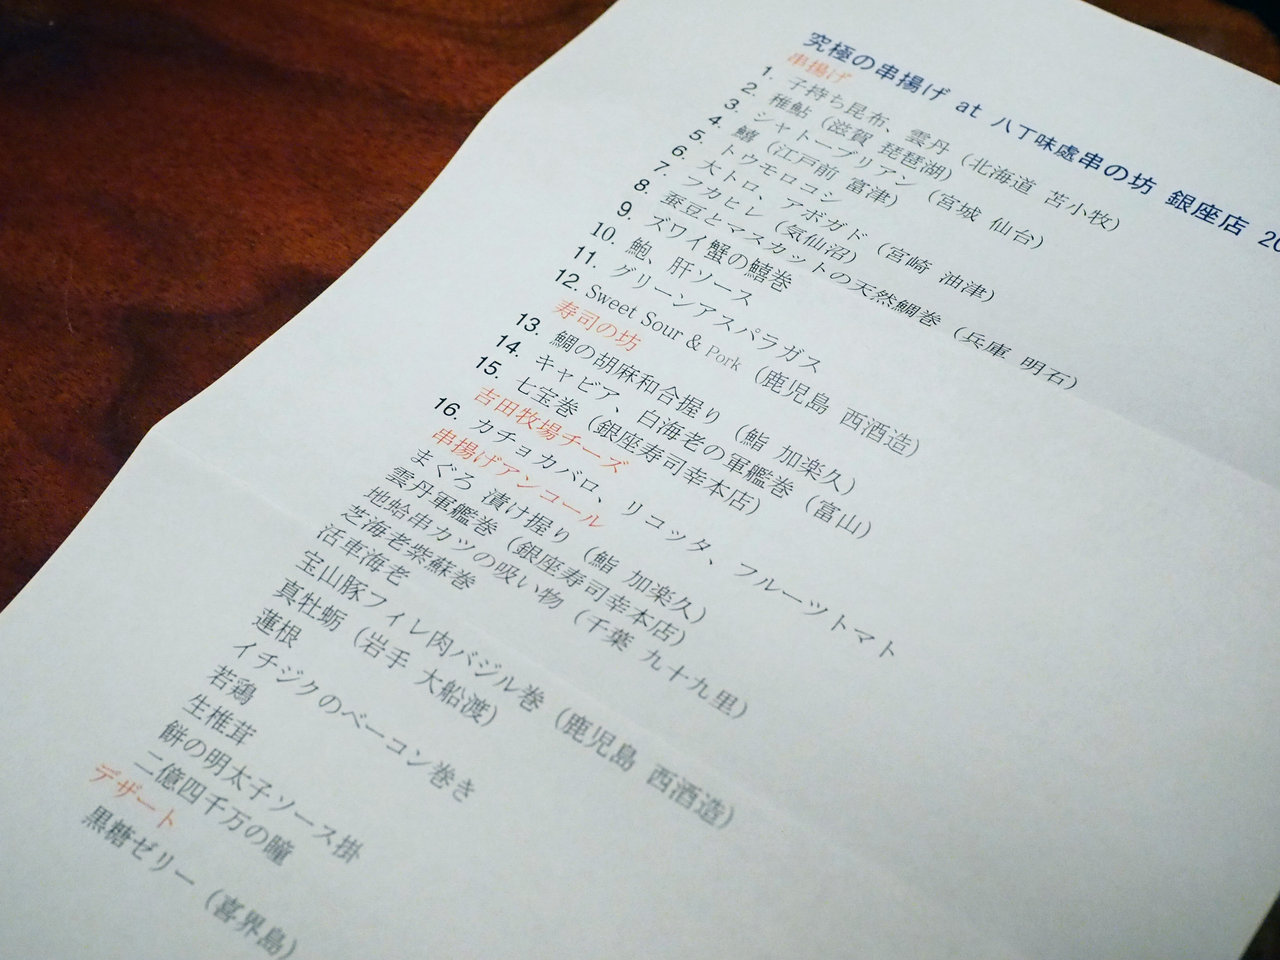 究極の串揚げ at 八丁味處串の坊 銀座店 20
串揚げ
1. 子持ち昆布、雲丹（北海道 苫小牧）
2. 稚鮎（滋賀 琵琶湖）
3. シャトーブリアン（宮城 仙台）
4. 鱚（江戸前 富津）
5. トウモロコシ
6. 大トロ、アボガド（宮崎 油津）
7. フカヒレ（気仙沼）
8. 蚕豆とマスカットの天然鯛巻（兵庫 明石）
9. ズワイ蟹の鱚巻
10. 鮑、肝ソース
11. グリーンアスパラガス
12. Sweet Sour & Pork（鹿児島 西酒造）
寿司の坊
13. 鯛の胡麻和合握り（鮨 加楽久）
14. キャビア、白海老の軍艦巻（富山）
15. 七宝巻（銀座寿司幸本店）
吉田牧場チーズ
16. カチョカバロ、リコッタ、フルーツトマト
串揚げアンコール
まぐろ 漬け握り（鮨 加楽久）
雲丹軍艦巻（銀座寿司幸本店）
地蛤串カツの吸い物（千葉 九十九里）
芝海老紫蘇巻
活車海老
宝山豚フィレ肉バジル巻（鹿児島 西酒造）
真牡蛎（岩手 大船渡）
蓮根
イチジクのベーコン巻き
若鶏
生椎茸
餅の明太子ソース掛
二億四千万の瞳
デザート
黒糖ゼリー（喜界島）